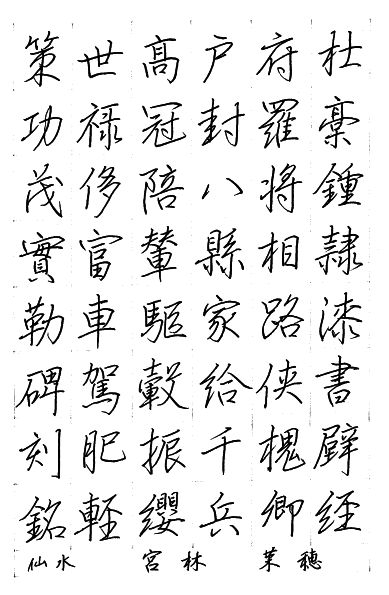 杜稾鍾隸漆書壁経
府羅將相路俠槐卿
戸封八縣家給千兵
高冠陪輦驅轂振纓
世禄侈富車駕肥軽
策功茂實勒碑刻銘
穂 茉 林 宮 水 仙